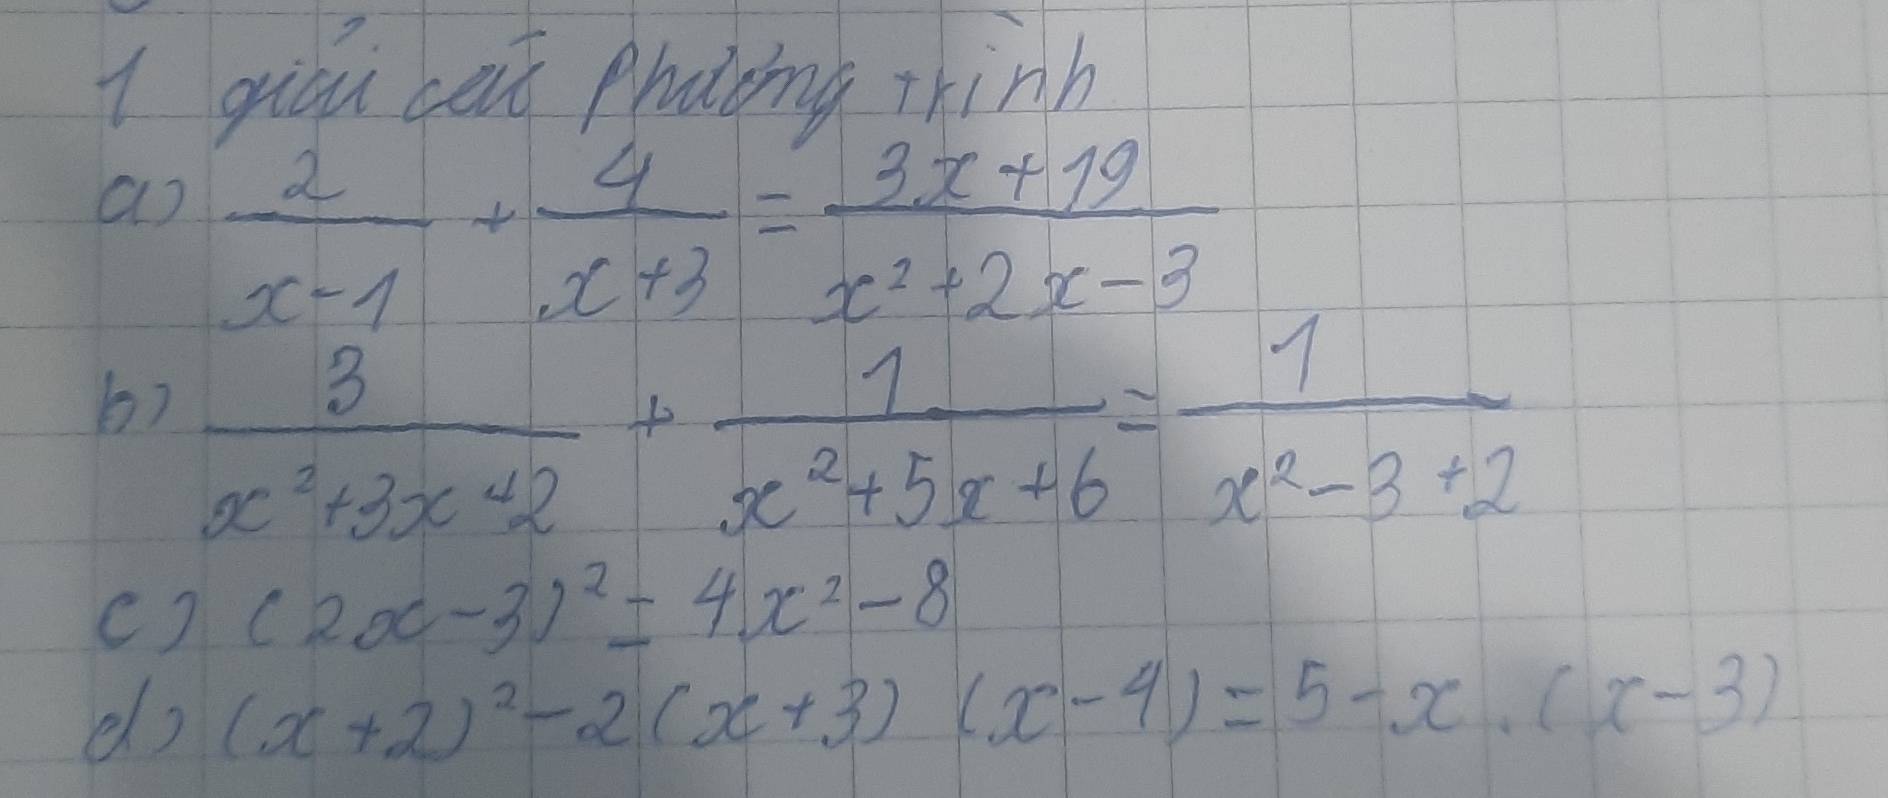 1 giải các phương trình
a) 2/(x-1) + 4/(x+3) = (3x+19)/(x²+2x-3)
b) 3/(x²+3x+2) + 1/(x²+5x+6) = 1/(x²-3+2)
c) (2x-3)² = 4x²-8
d) (x+2)²-2(x+3) (x-4) = 5-x.(x-3)